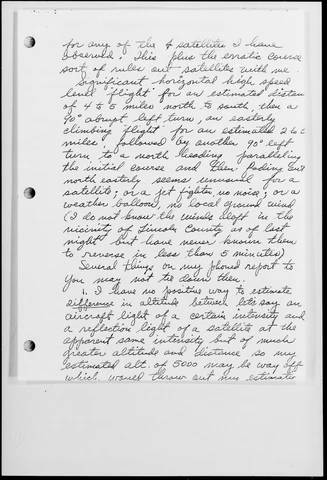 for any of the 4 satellites I have
observed. This plus the erratic course
sort of rules out satellites with me.
Significant horizontal high speed
level flight for an estimated distan
of 4 to 5 miles north to south, then a
90° abrupt left turn, an easterly
climbing flight for an estimated 2 to 3
miles, followed by another 90° left
turn to a north heading paralleling
the initial course and then fading out
north easterly seems unusual for a
satellite; or a jet fighter, no noise; or a
weather balloon, no local ground wind
(I do not know the winds aloft in the
vicinity of Lincoln County as of last
night but have never known them
to reverse in less than 5 minutes)
Several things on my phoned report to
you may not tie down then.
1. I have no positive way to estimate
difference in altitude between let's say an
aircraft light of a certain intensity and
a reflection light of a satellite at the
apparent same intensity but of much
greater altitude and distance so my
estimated alt. of 5000 may be way off
which would throw out my estimates